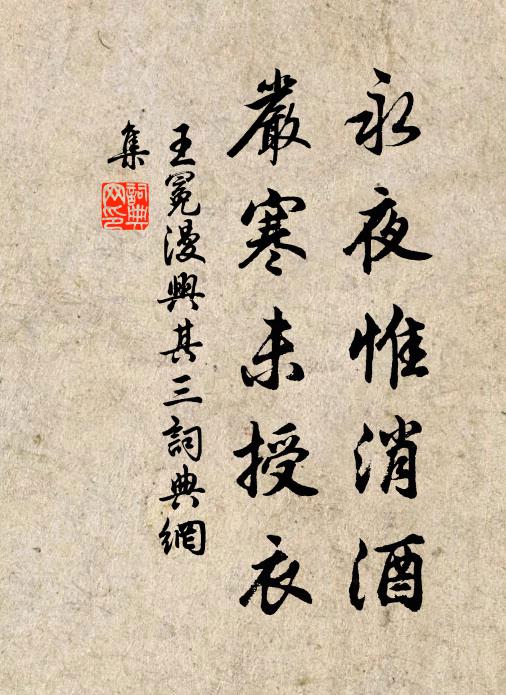 永夜惟消酒
嚴寒未授衣
王冕漫興其三詞典網
集
詞典
网印